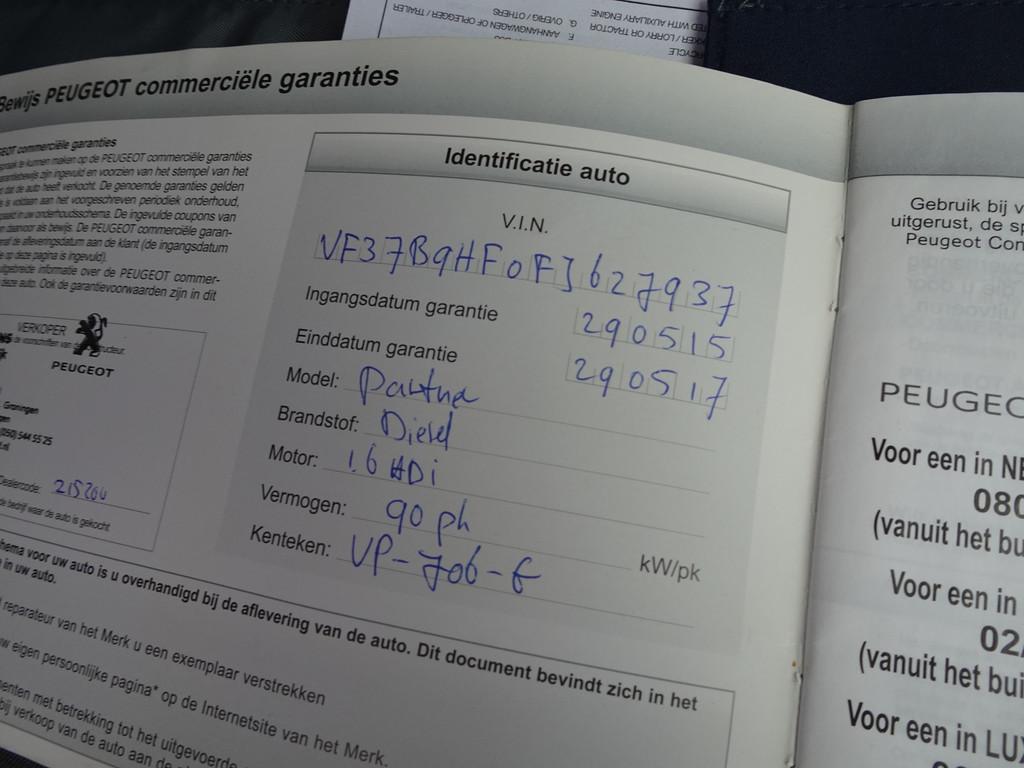 CYCLE
KKER / LORRY OR TRACTOR
TED WITH AUXILIARY ENGINE
F. AANHANGWAGEN OF OPLEGGER / TRAILER
G. OVERIG / OTHERS
Bewijs PEUGEOT commerciële garanties
EOT commerciële garanties
te kunnen maken op de PEUGEOT commerciële garanties
zijn ingevuld en voorzien van het stempel van het
dat de auto heeft verkocht. De genoemde garanties gelden
is voldaan aan het voorgeschreven periodiek onderhoud,
in uw onderhoudsschema. De ingevulde coupons van
daarvoor als bewijs. De PEUGEOT commerciële garan-
de afleveringsdatum aan de klant (de ingangsdatum
op deze pagina is ingevuld).
informatie over de PEUGEOT commer-
deze auto. Ook de garantievoorwaarden zijn in dit
VERKOPER
de voorschriften van de
PEUGEOT
Groningen
(050) 544 55 25
.nl
Dealercode: 215200
bedrijf waar de auto is gekocht
Identificatie auto
V.I.N.
VF37B9HF0FJ627937
Ingangsdatum garantie 290515
Einddatum garantie 290517
Model: Partner
Brandstof: Diesel
Motor: 1.6 HDi
Vermogen: 90 pk kW/pk
Kenteken: VP-706-G
hema voor uw auto is u overhandigd bij de aflevering van de auto. Dit document bevindt zich in het
in uw auto.
reparateur van het Merk u een exemplaar verstrekken
uw eigen persoonlijke pagina* op de Internetsite van het Merk.
menten met betrekking tot het uitgevoerde
bij verkoop van de auto aan de
Gebruik bij v
uitgerust, de sp
Peugeot Con
PEUGEO
Voor een in NE
080
(vanuit het bu
Voor een in
02/
(vanuit het bui
Voor een in LUX